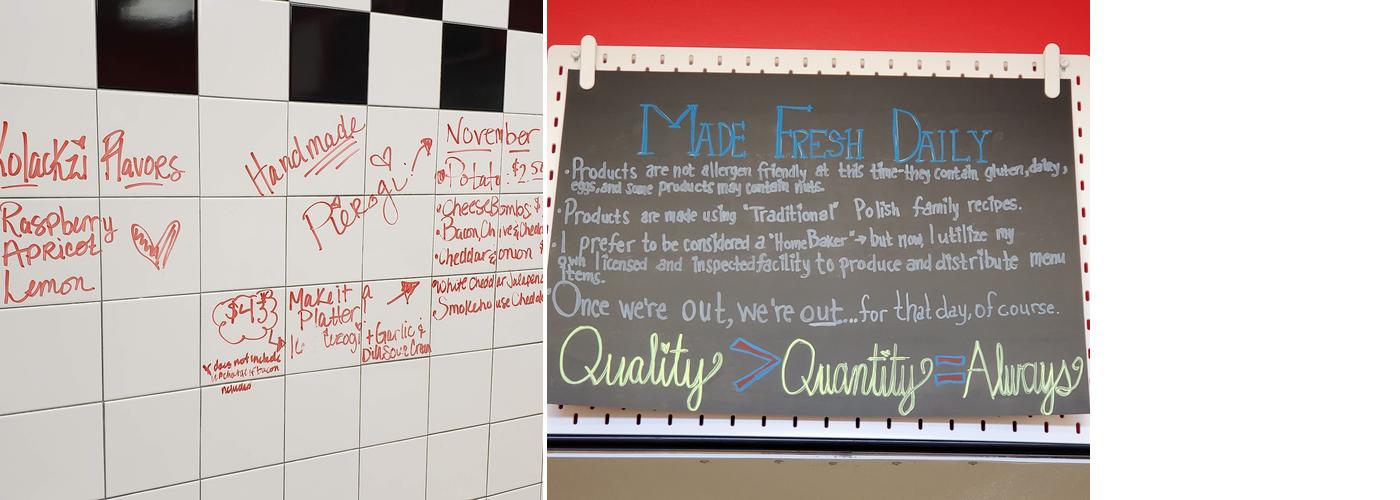 Kolackzi Flavors
Raspberry
Apricot
Lemon
Handmade
Pierogi
$43
* does not include
Make it a
Platter
16
+ Garlic &
Dill Sour Cream
November
• Potato: $2.5
• Cheese Bombs: $
• Bacon, Chive & Chedd
• Cheddar & onion $
White Cheddar Jalapeno
Smokehouse Chedda
MADE FRESH DAILY
• Products are not allergen friendly at this time-they contain gluten, dairy,
eggs, and some products may contain nuts.
• Products are made using "Traditional" Polish family recipes.
• I prefer to be considered a "Home Baker"→ but now, I utilize my
own licensed and inspected facility to produce and distribute menu
items.
Once we're out, we're out... for that day, of course.
Quality > Quantity = Always